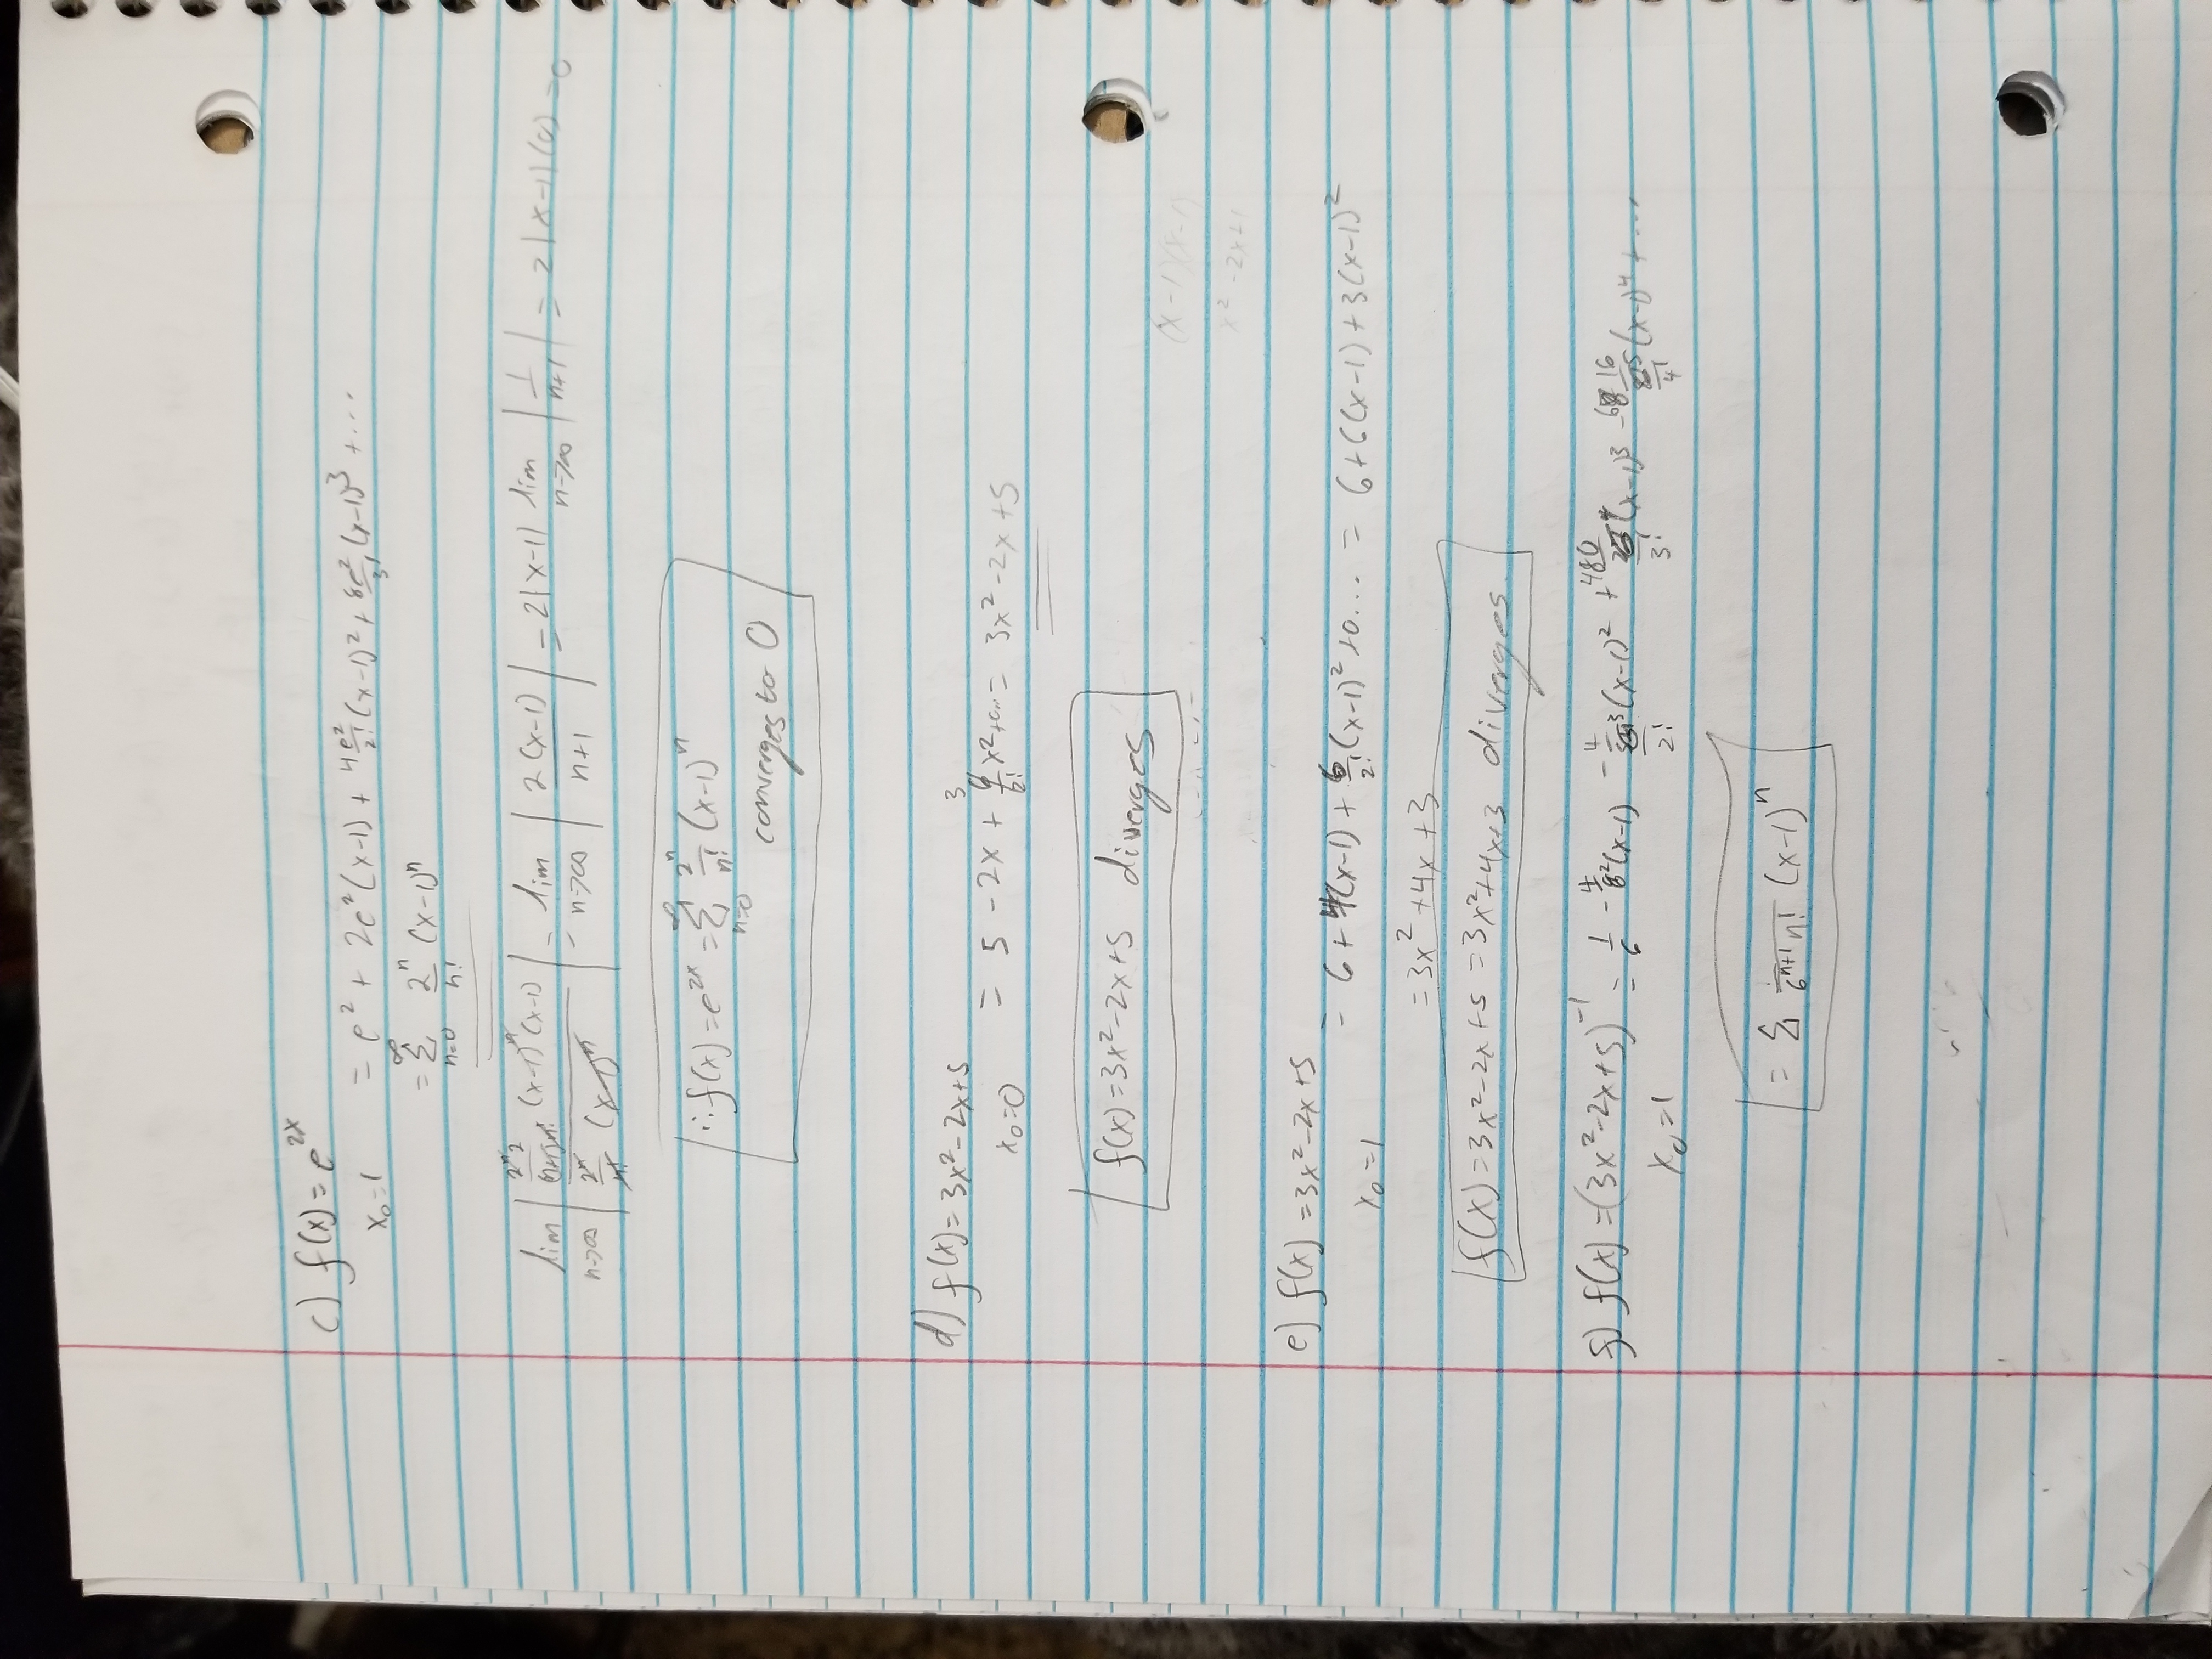 c) f(x) = e^{2x}
x₀=1 = e² + 2e²(x-1) + 4e²/2! (x-1)² + 8e²/3! (x-1)³ + ...
= ∑_{n=0}^{∞} 2^n/n! (x-1)^n
lim_{n→∞} | (2^n 2/((n+1)n!) (x-1)^n (x-1)) / (2^n/n! (x-1)^n) | = lim_{n→∞} | 2(x-1)/(n+1) | = 2|x-1| lim_{n→∞} | 1/(n+1) | = 2|x-1|(0) = 0
∴ f(x) = e^{2x} = ∑_{n=0}^{∞} 2^n/n! (x-1)^n
converges to 0
d) f(x) = 3x²-2x+5
x₀=0 = 5 - 2x + 6/2! x² +0... = 3x²-2x+5
3
f(x) = 3x²-2x+5 diverges
(x-1)(x-1)
x²-2x+1
e) f(x) = 3x²-2x+5
x₀=1 = 6 + 4(x-1) + 6/2! (x-1)² +0... = 6+6(x-1)+3(x-1)²
= 3x² +4x +3
f(x) = 3x²-2x+5 = 3x²+4x+3 diverges.
f) f(x) = (3x²-2x+5)^{-1} = 1/6 - 4/6² (x-1) - (4/6³)/2! (x-1)² + (480/6⁴)/3! (x-1)³ - (16/6⁵)/4! (x-1)⁴ + ...
x₀=1
= ∑ /(6^{n+1} n!) (x-1)^n